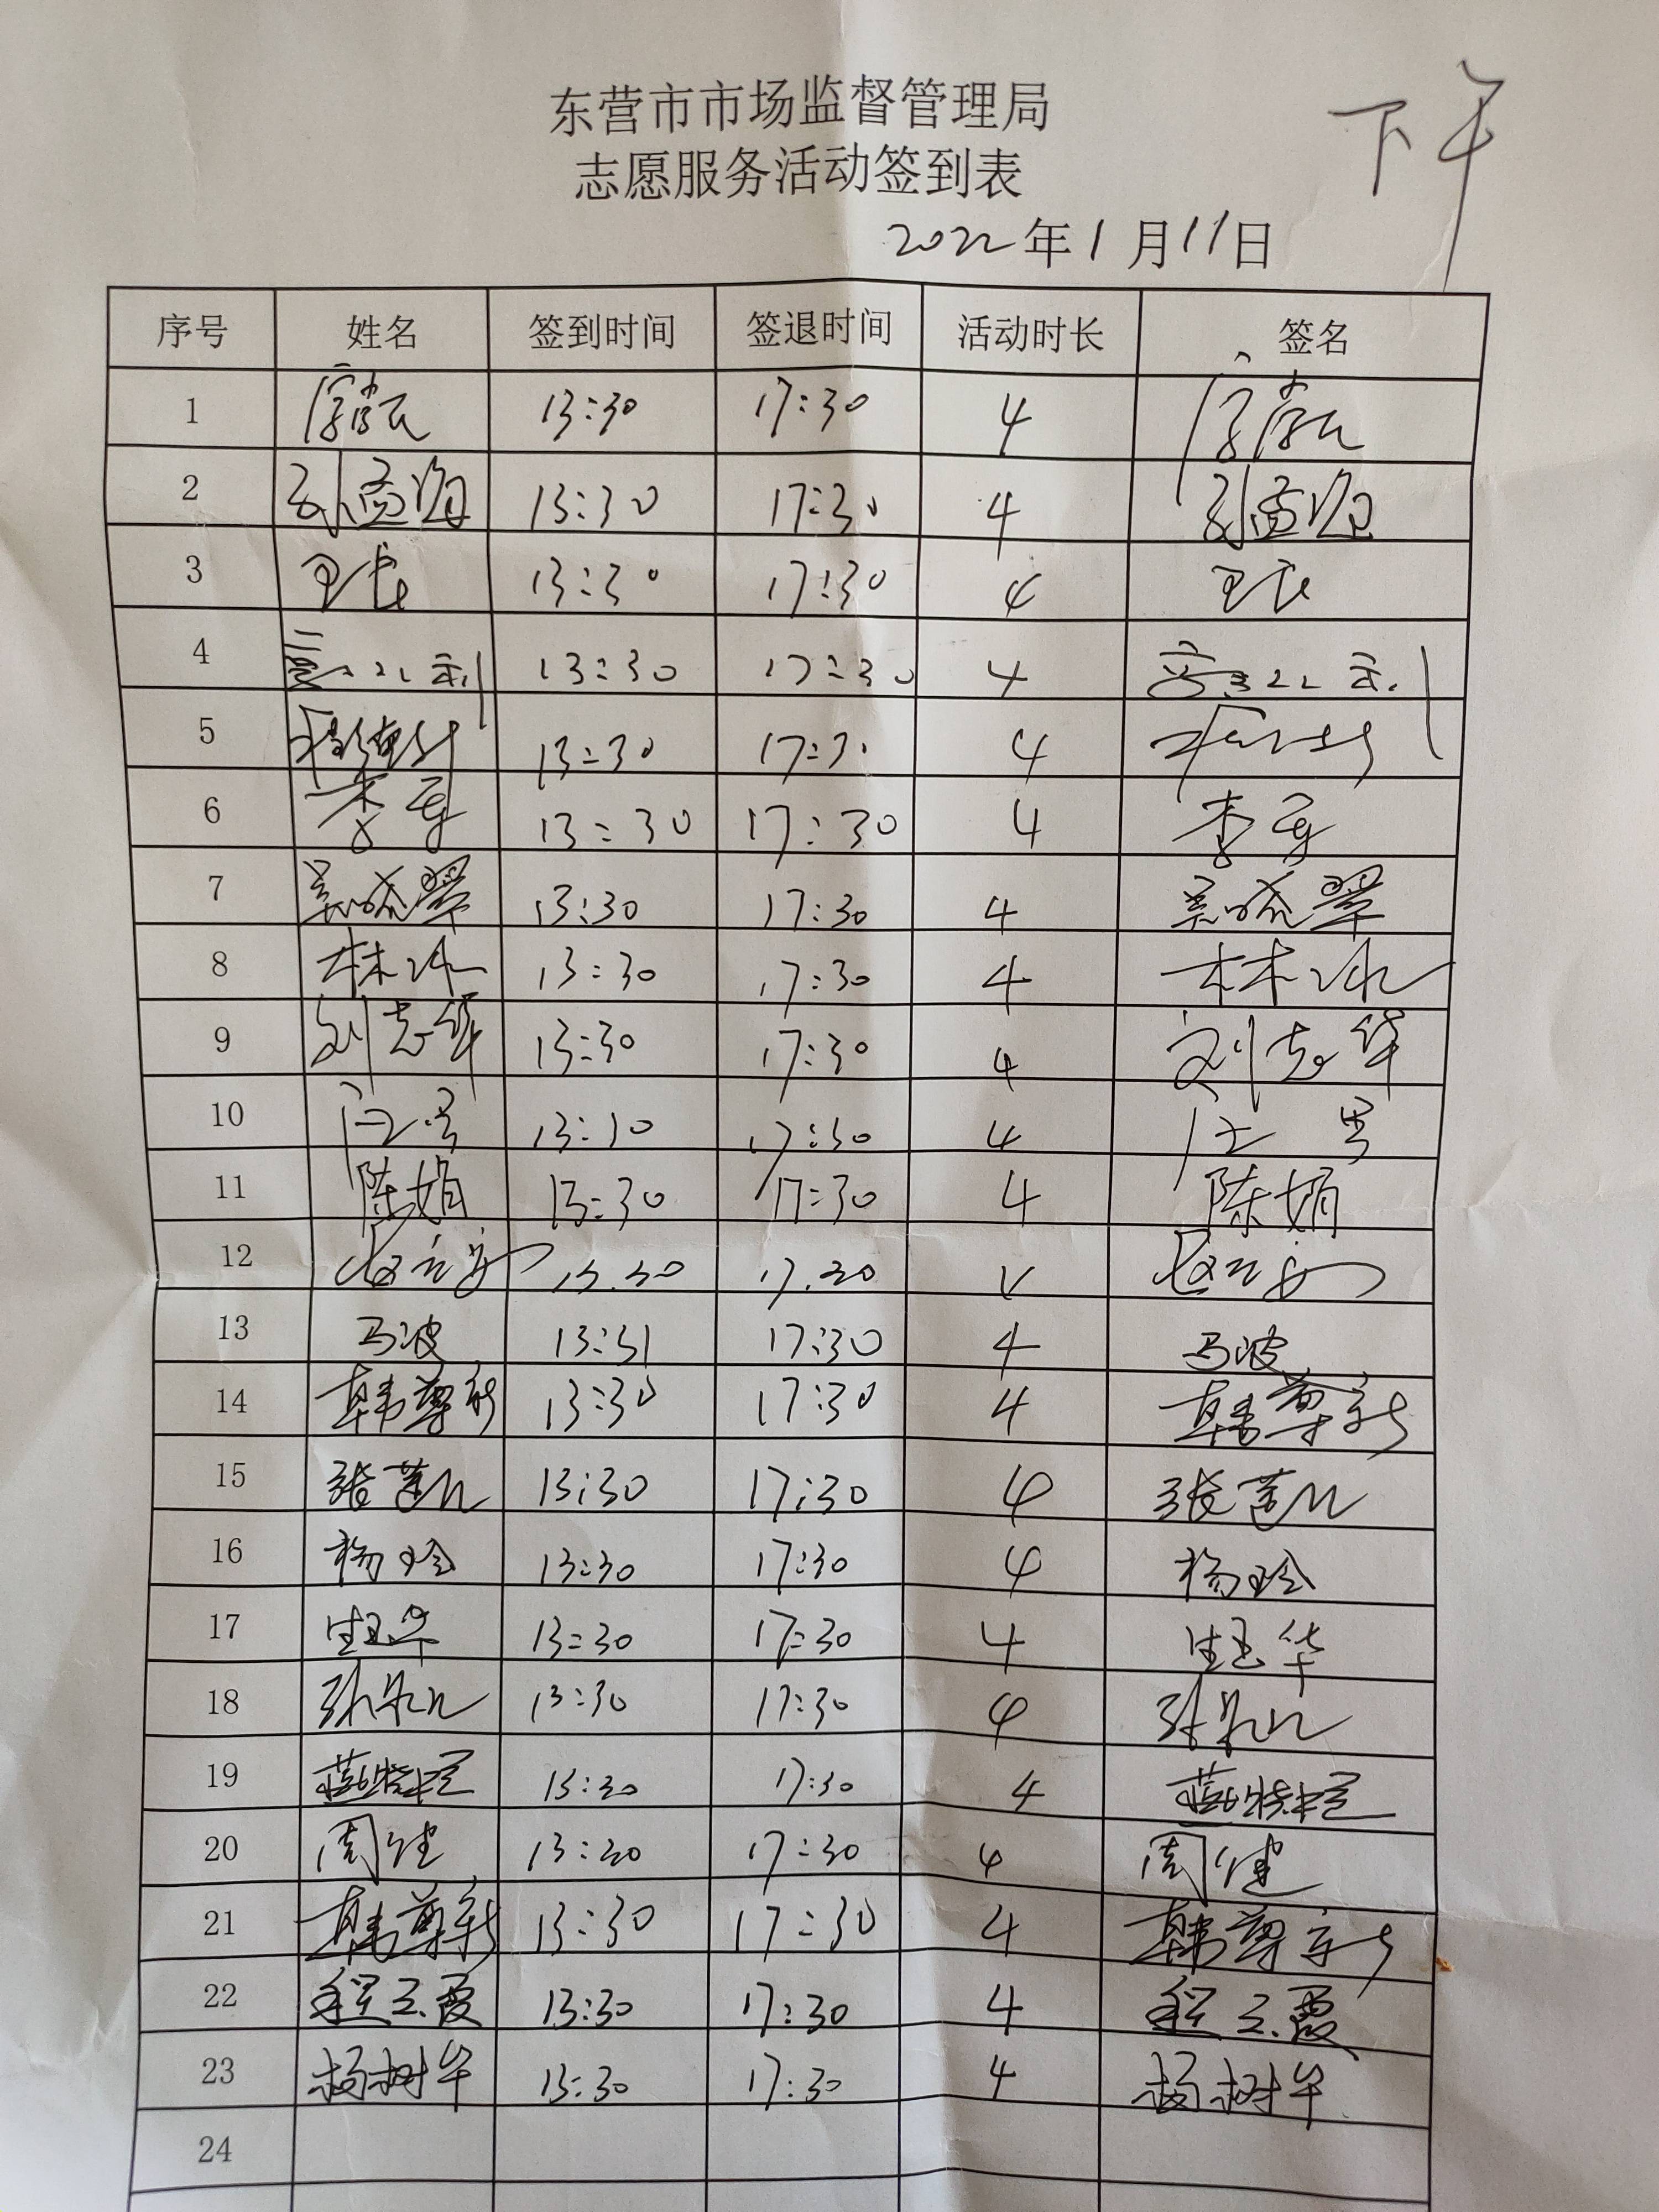 下午
东营市市场监督管理局
志愿服务活动签到表
2022年1月11日
序号 姓名 签到时间 签退时间 活动时长 签名
1 13:30 17:30 4
2 孙孟海 13:30 17:30 4 孙孟海
3 13:30 17:30 4
4 13:30 17:30 4
5 13:30 17:3 4
6 李军 13:30 17:30 4 李军
7 吴晓翠 13:30 17:30 4 吴晓翠
8 林冰 13:30 17:30 4 林冰
9 刘志华 13:30 17:30 4 刘志华
10 13:30 17:30 4
11 陈娟 13:30 17:30 4 陈娟
12 13.30 17.30
13 马波 13:31 17:30 4 马波
14 韩尊新 13:30 17:30 4 韩尊新
15 13:30 17:30 4
16 杨玲 13:30 17:30 4 杨玲
17 生玉华 13:30 17:30 4 生玉华
18 13:30 17:30 4
19 13:30 17:30 4
20 周健 13:30 17:30 4 周健
21 韩尊新 13:30 17:30 4 韩尊新
22 程玉霞 13:30 17:30 4 程玉霞
23 杨树华 13:30 17:30 4 杨树华
24